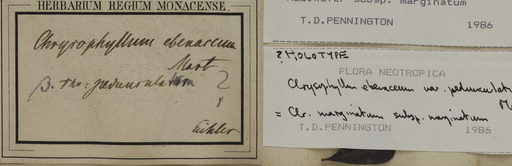 HERBARIUM REGIUM MONACENSE.
Chrysophyllum ebenaceum
Mart
β. var: pedunculatum ?
Eichler
subsp. marginatum
T.D.PENNINGTON 1986
? HOLOTYPE
FLORA NEOTROPICA
Chrysophyllum ebenaceum var. pedunculatu
M
= Chr. marginatum subsp. marginatum
T.D.PENNINGTON 1986